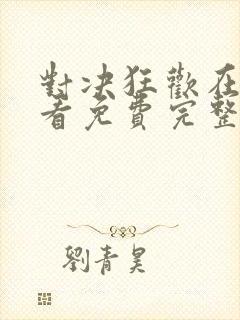 對决狂歡在
看免費完整
劉青昊